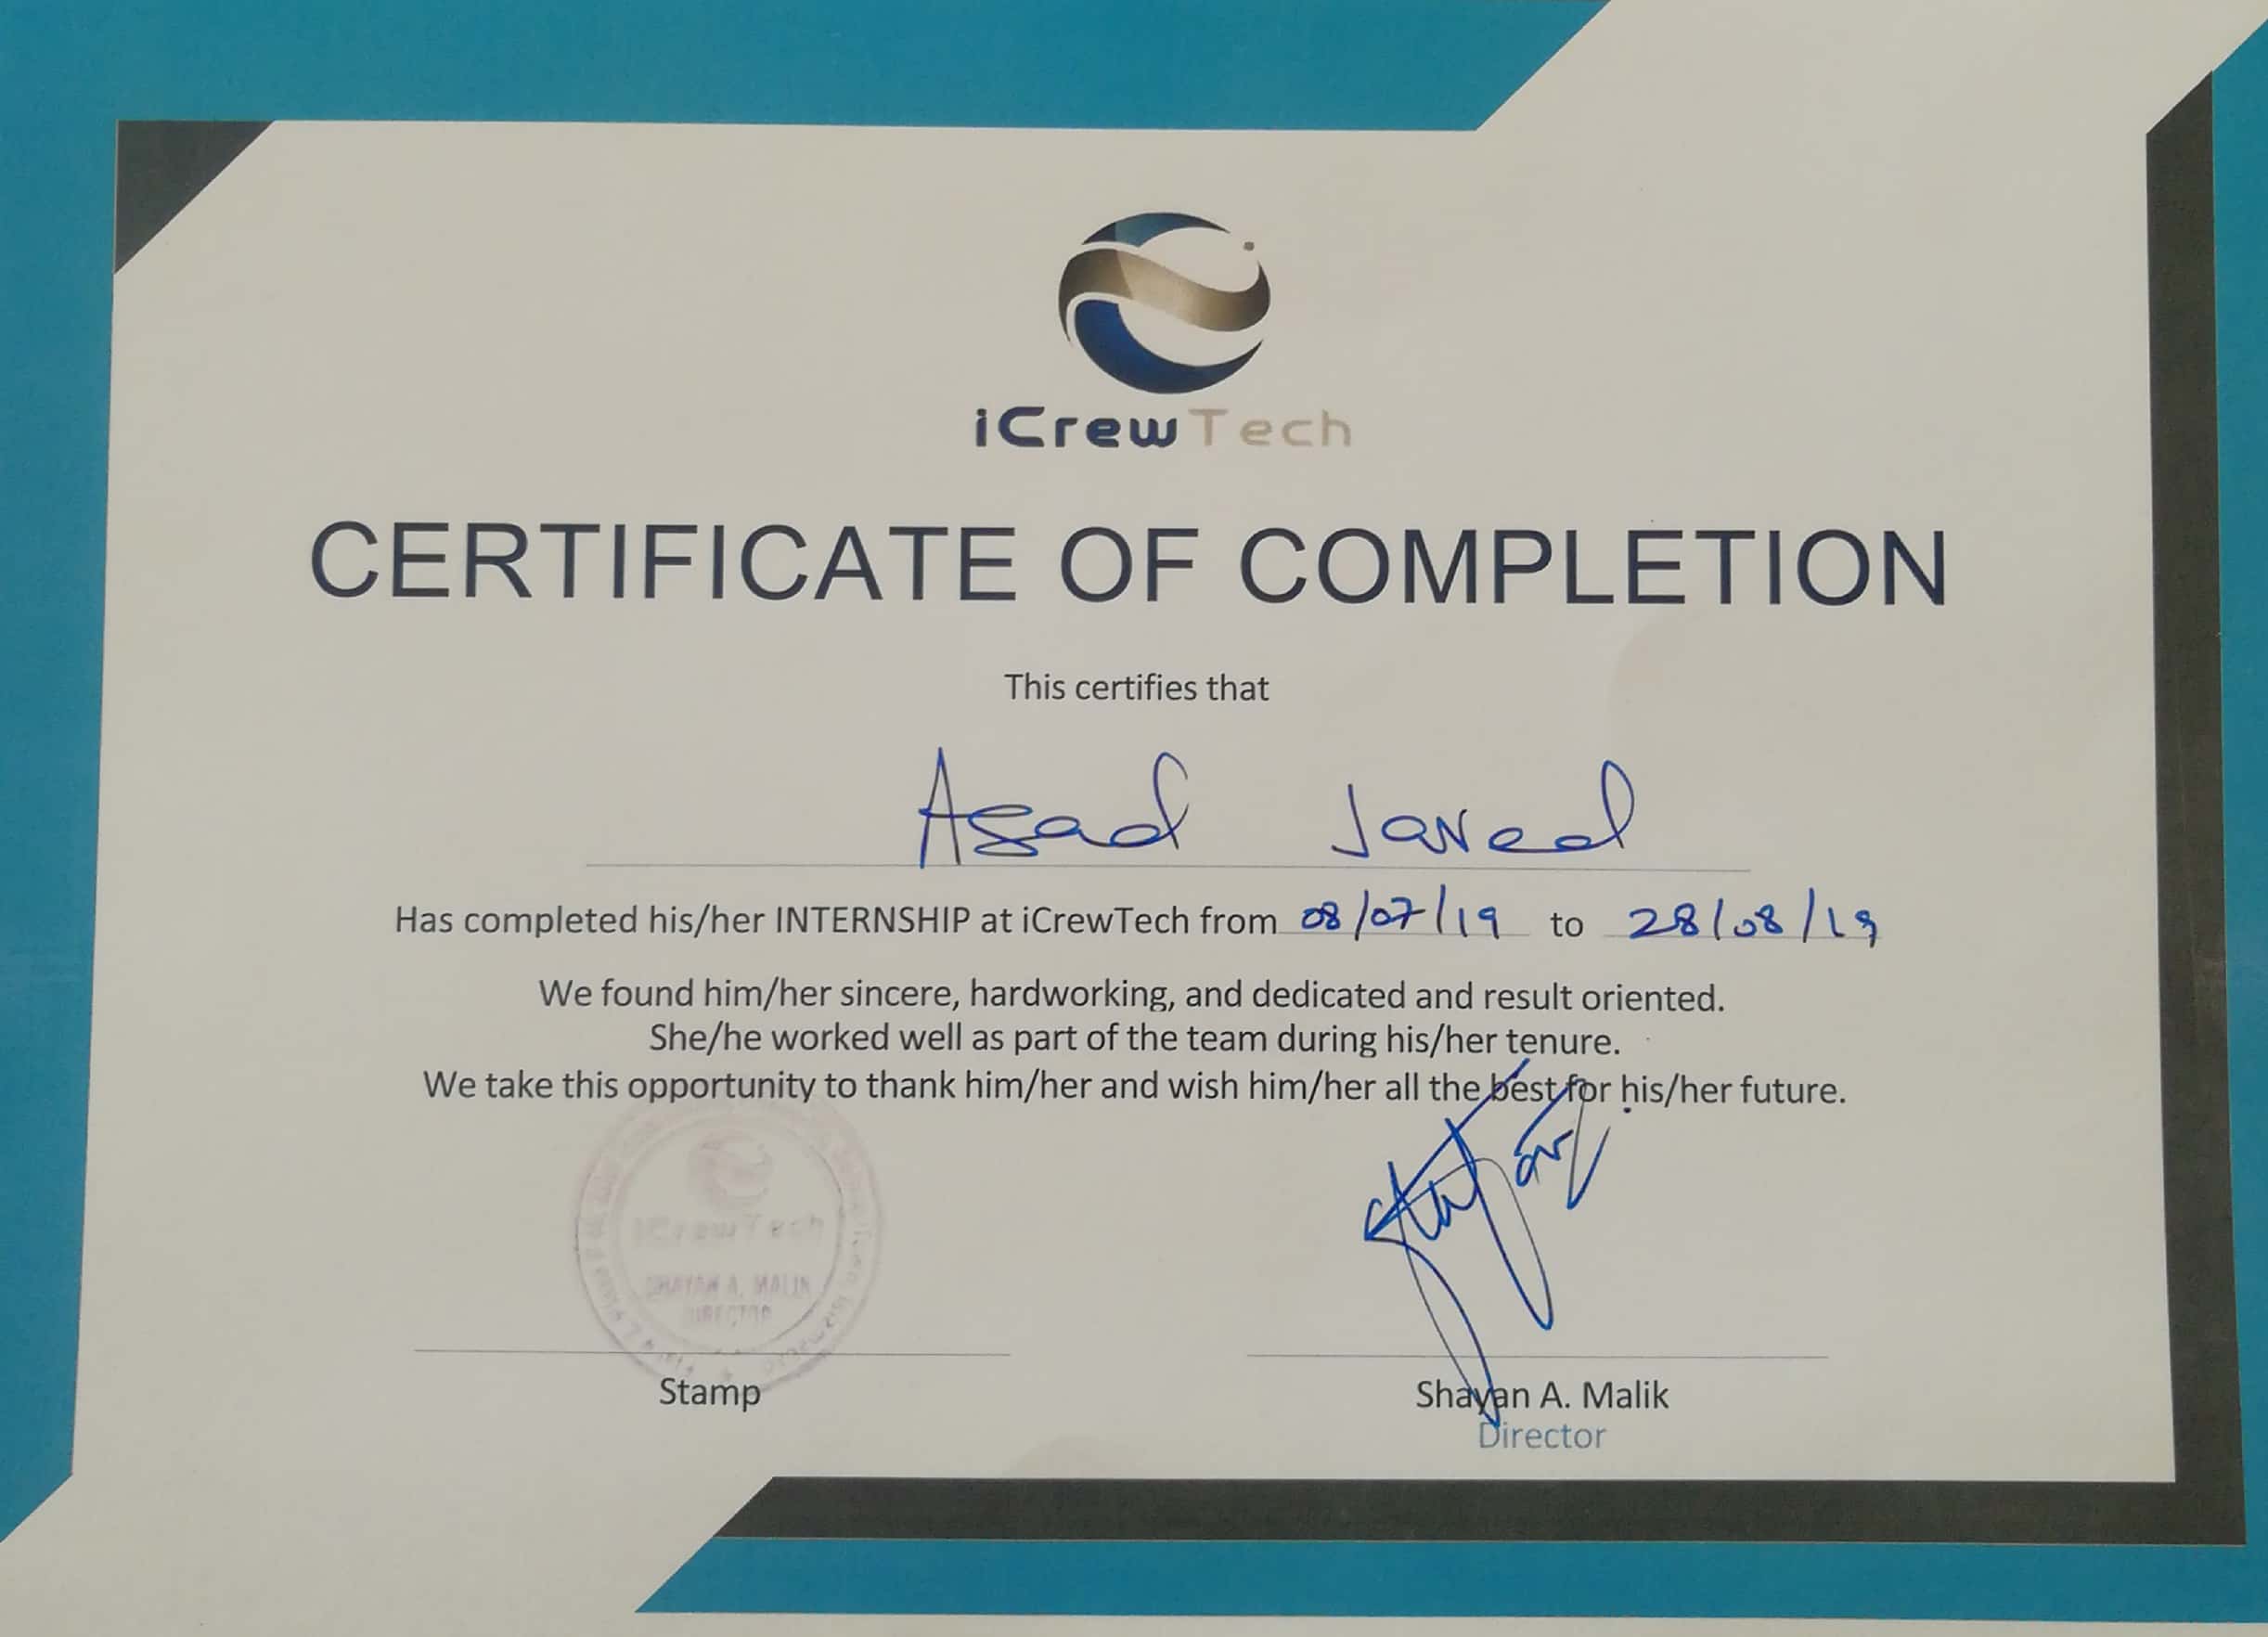 iCrewTech
CERTIFICATE OF COMPLETION
This certifies that
Asad Javeed
Has completed his/her INTERNSHIP at iCrewTech from 08/07/19 to 28/08/19
We found him/her sincere, hardworking, and dedicated and result oriented.
She/he worked well as part of the team during his/her tenure.
We take this opportunity to thank him/her and wish him/her all the best for his/her future.
iCrewTech
SHAYAN A. MALIK
DIRECTOR
Stamp
Shayan A. Malik
Director